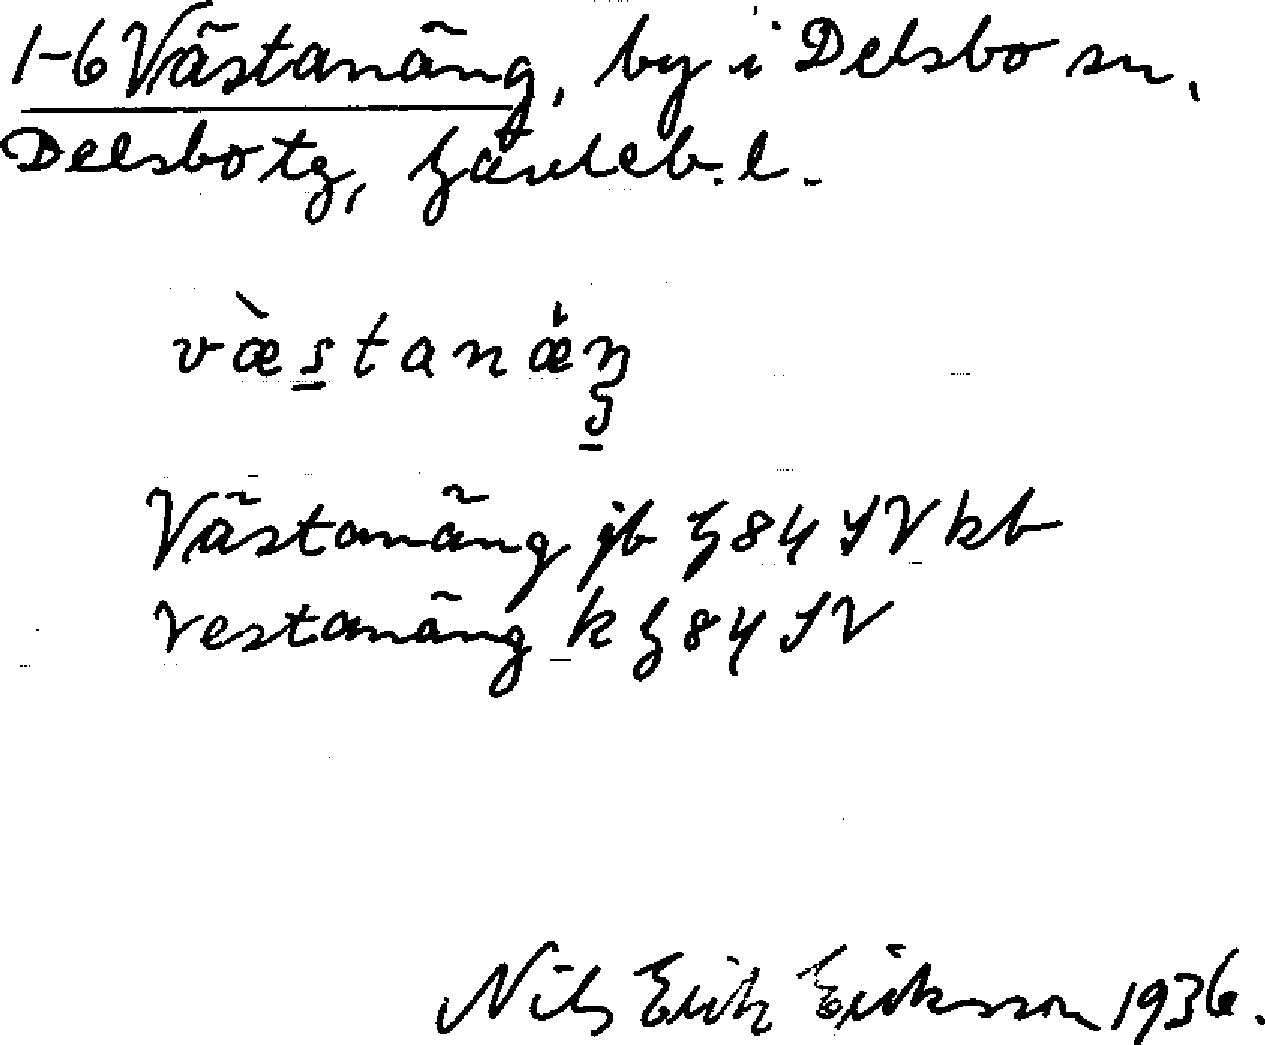 1-6 Västanäng, by i Delsbo sn.
Delsbo tg, Gävleb. l.
västanäŋ
Västanäng jb G 84 IV kb
Vestanäng k G 84 IV
Nils Erik Eriksson 1936.